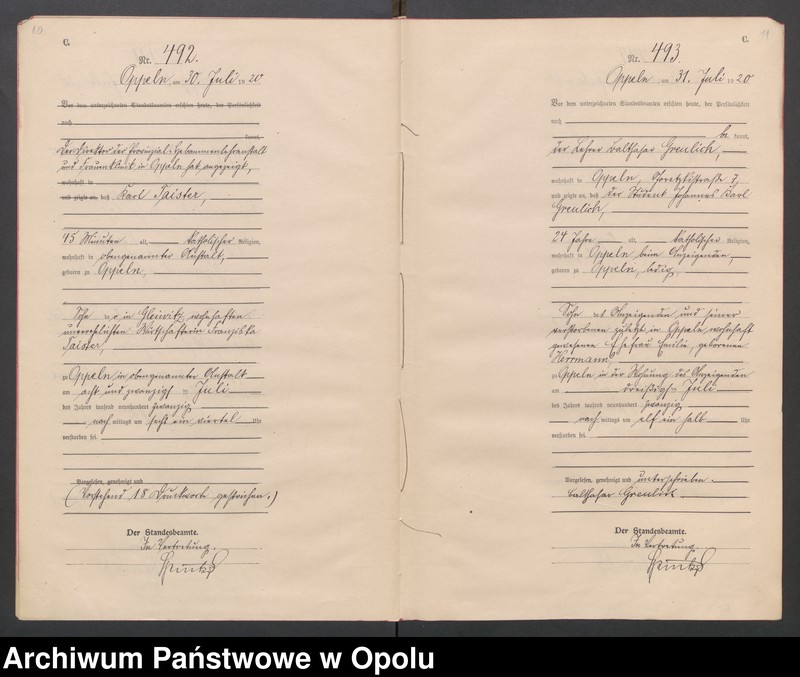 10
C.
Nr. 492.
Oppeln, am 30. Juli 1920
Vor dem unterzeichneten Standesbeamten erschien heute, der Persönlichkeit
nach
kannt,
Der Direktor der Provinzial-Hebammenlehranstalt
und Frauenklinik in Oppeln hat angezeigt,
wohnhaft in
und zeigte an, daß Karl Paister,
45 Minuten alt, katholischer Religion,
wohnhaft in obengenannter Anstalt,
geboren zu Oppeln,
Sohn der in Gleiwitz wohnhaften
unverehelichten Wirtschafterin Franziska
Paister,
zu Oppeln in obengenannter Anstalt
am acht und zwanzigsten Juli
des Jahres tausend neunhundert zwanzig
nach mittags um sechs ein viertel Uhr
verstorben sei.
Vorgelesen, genehmigt und
(Vorstehend 18 Druckworte gestrichen.)
Der Standesbeamte.
In Vertretung.
11
C.
Nr. 493
Oppeln, am 31. Juli 1920
Vor dem unterzeichneten Standesbeamten erschien heute, der Persönlichkeit
nach
be kannt,
der Lehrer Balthasar Greulich,
wohnhaft in Oppeln, 7,
und zeigte an, daß der Student Johannes Karl
Greulich,
24 Jahre alt, katholischer Religion,
wohnhaft in Oppeln beim Anzeigenden,
geboren zu Oppeln, ledig,
Sohn des Anzeigenden und seiner
verstorbenen zuletzt in Oppeln wohnhaft
gewesenen Ehefrau Emilie, geborenen
Herrmann,
zu Oppeln in der Wohnung des Anzeigenden
am dreißigsten Juli
des Jahres tausend neunhundert zwanzig
nach mittags um elf ein halb Uhr
verstorben sei.
Vorgelesen, genehmigt und unterschrieben.
Balthasar Greulich
Der Standesbeamte.
In Vertretung.
Archiwum Państwowe w Opolu